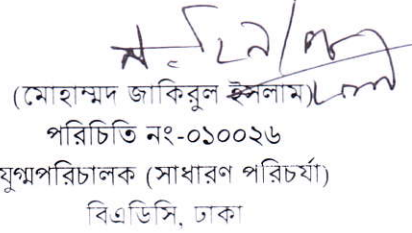 (মোহাম্মদ জাকিরুল ইসলাম)
পরিচিতি নং-০১০০২৬
যুগ্মপরিচালক (সাধারণ পরিচর্যা)
বিএডিসি, ঢাকা